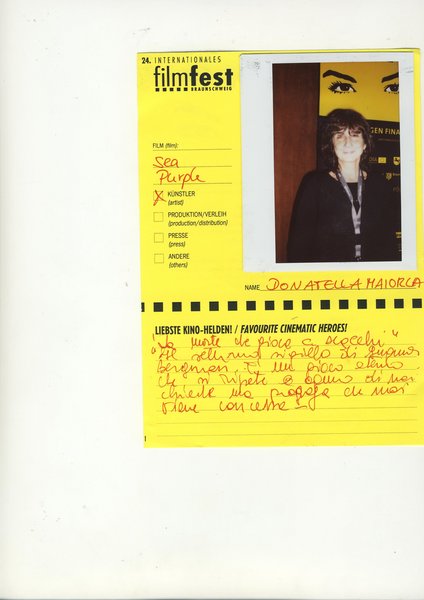 24. INTERNATIONALES
filmfest
BRAUNSCHWEIG
GEN FINA
FILM (film):
Sea
Purple
X KÜNSTLER
(artist)
PRODUKTION/VERLEIH
(production/distribution)
PRESSE
(press)
ANDERE
(others)
NAME DONATELLA MAIORCA
LIEBSTE KINO-HELDEN! / FAVOURITE CINEMATIC HEROES!
"La morte che gioca a scacchi"
settimo sigillo di
Bergman. È un gioco
che si ripete e ognuno di noi
chiede una proroga che mai
viene concessa